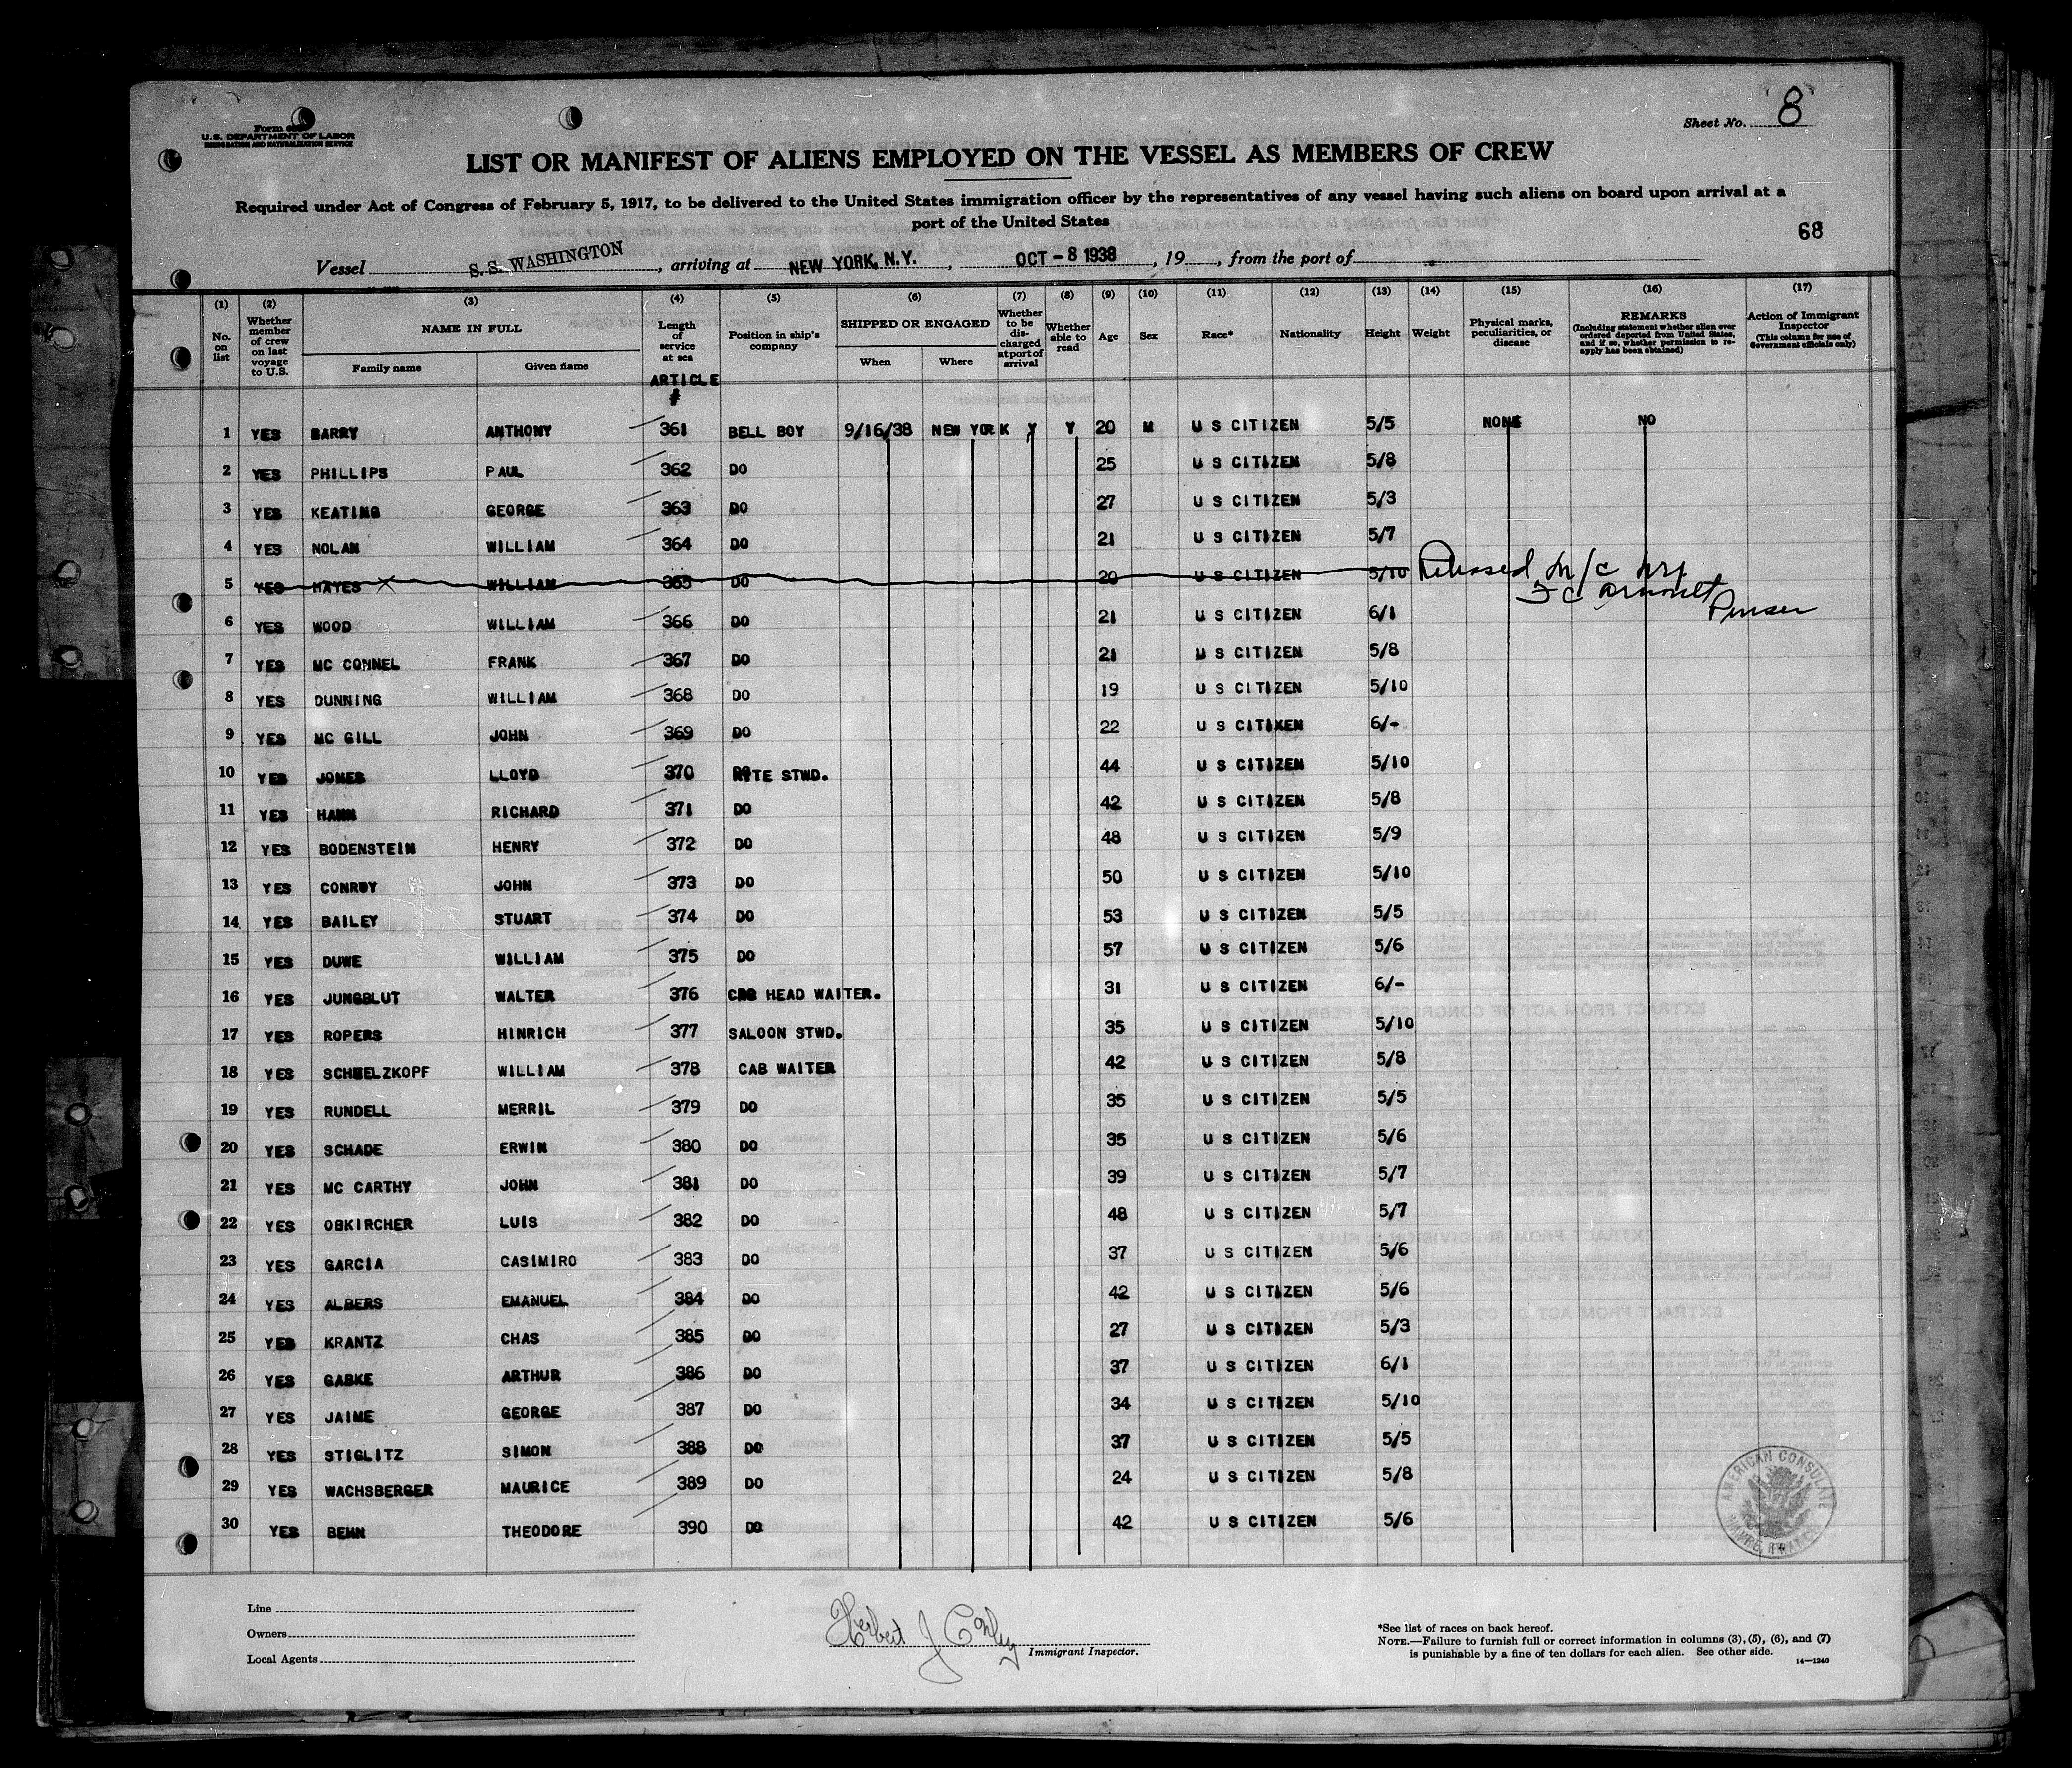 U. S. DEPARTMENT OF LABOR
IMMIGRATION AND NATURALIZATION SERVICE
Sheet No. 8
LIST OR MANIFEST OF ALIENS EMPLOYED ON THE VESSEL AS MEMBERS OF CREW
Required under Act of Congress of February 5, 1917, to be delivered to the United States immigration officer by the representatives of any vessel having such aliens on board upon arrival at a
port of the United States
68
Vessel S. S. WASHINGTON, arriving at NEW YORK, N.Y., OCT -8 1938, 19 , from the port of
(1) (2) (3) (4) (5) (6) (7) (8) (9) (10) (11) (12) (13) (14) (15) (16) (17)
No. on list
Whether member of crew on last voyage to U.S.
NAME IN FULL
Family name Given name
Length of service at sea
ARTICLE #
Position in ship's company
SHIPPED OR ENGAGED
When Where
Whether to be discharged at port of arrival
Whether able to read
Age Sex Race* Nationality Height Weight
Physical marks, peculiarities, or disease
REMARKS
(Including statement whether alien ever ordered deported from United States, and if so, whether permission to reapply has been obtained)
Action of Immigrant Inspector
(This column for use of Government officials only)
1 YES BARRY ANTHONY 361 BELL BOY 9/16/38 NEW YORK Y Y 20 M U S CITIZEN 5/5 NONE NO
2 YES PHILLIPS PAUL 362 DO 25 U S CITIZEN 5/8
3 YES KEATING GEORGE 363 DO 27 U S CITIZEN 5/3
4 YES NOLAN WILLIAM 364 DO 21 U S CITIZEN 5/7
5 YES HAYES X WILLIAM 365 DO 20 U S CITIZEN 5/10 Released
Purser
6 YES WOOD WILLIAM 366 DO 21 U S CITIZEN 6/1
7 YES MC CONNEL FRANK 367 DO 21 U S CITIZEN 5/8
8 YES DUNNING WILLIAM 368 DO 19 U S CITIZEN 5/10
9 YES MC GILL JOHN 369 DO 22 U S CITIXEN 6/-
10 YES JONES LLOYD 370 NTE STWD. 44 U S CITIZEN 5/10
11 YES HANN RICHARD 371 DO 42 U S CITIZEN 5/8
12 YES BODENSTEIN HENRY 372 DO 48 U S CITIZEN 5/9
13 YES CONROY JOHN 373 DO 50 U S CITIZEN 5/10
14 YES BAILEY STUART 374 DO 53 U S CITIZEN 5/5
15 YES DUWE WILLIAM 375 DO 57 U S CITIZEN 5/6
16 YES JUNGBLUT WALTER 376 HEAD WAITER. 31 U S CITIZEN 6/-
17 YES ROPERS HINRICH 377 SALOON STWD. 35 U S CITIZEN 5/10
18 YES SCHMELZKOPF WILLIAM 378 CAB WAITER 42 U S CITIZEN 5/8
19 YES RUNDELL MERRIL 379 DO 35 U S CITIZEN 5/5
20 YES SCHADE ERWIN 380 DO 35 U S CITIZEN 5/6
21 YES MC CARTHY JOHN 381 DO 39 U S CITIZEN 5/7
22 YES OBKIRCHER LUIS 382 DO 48 U S CITIZEN 5/7
23 YES GARCIA CASIMIRO 383 DO 37 U S CITIZEN 5/6
24 YES ALBERS EMANUEL 384 DO 42 U S CITIZEN 5/6
25 YES KRANTZ CHAS 385 DO 27 U S CITIZEN 5/3
26 YES GABKE ARTHUR 386 DO 37 U S CITIZEN 6/1
27 YES JAIME GEORGE 387 DO 34 U S CITIZEN 5/10
28 YES STIGLITZ SIMON 388 DO 37 U S CITIZEN 5/5
29 YES WACHSBERGER MAURICE 389 DO 24 U S CITIZEN 5/8
30 YES BEHN THEODORE 390 DO 42 U S CITIZEN 5/6
AMERICAN CONSULATE
Line
Owners
Local Agents
Herbert J Conley
Immigrant Inspector.
*See list of races on back hereof.
NOTE.—Failure to furnish full or correct information in columns (3), (5), (6), and (7)
is punishable by a fine of ten dollars for each alien. See other side.
14—1240